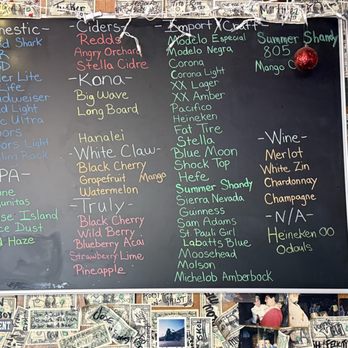 mestic-
d Shark
er Lite
Life
adweiser
d Light
c Ultra
ors
ors Light
lim Rock
PA-
une
gunitas
ose Island
ice Dust
d Haze
-Ciders-
Redds
Angry Orchard
Stella Cidre
-Kona-
Big Wave
Long Board
Hanalei
-White Claw-
Black Cherry
Grapefruit Mango
Watermelon
-Truly-
Black Cherry
Wild Berry
Blueberry Acai
Strawberry Lime
Pineapple
Import / Craft
Modelo Especial
Modelo Negra
Corona
Corona Light
XX Lager
XX Amber
Pacifico
Heineken
Fat Tire
Stella
Blue Moon
Shock Top
Hefe
Summer Shandy
Sierra Nevada
Guinness
Sam Adams
St. Pauli Girl
Labatts Blue
Moosehead
Molson
Michelob Amberbock
Summer Shandy
805
Mango C
-Wine-
Merlot
White Zin
Chardonnay
Champagne
-N/A-
Heineken 00
Odouls